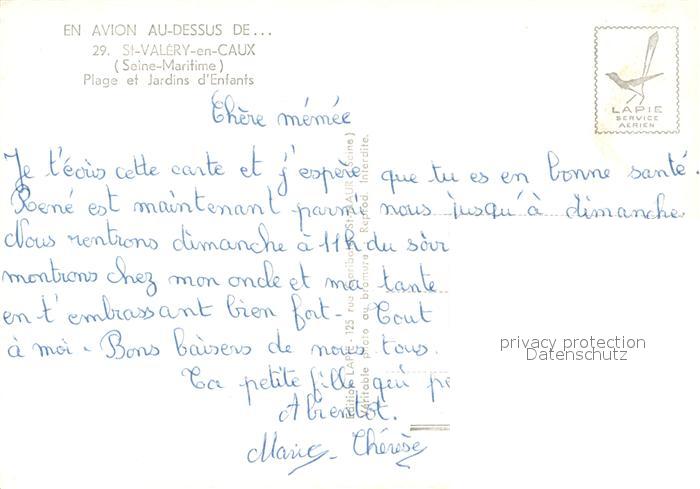 EN AVION AU-DESSUS DE...
29. St-VALÉRY-en-CAUX
(Seine-Maritime)
Plage et Jardins d'Enfants
LAPIE
SERVICE
AERIEN
Chère mémée
Je t'écris cette carte et j'espère que tu es en bonne santé.
René est maintenant parmé nous jusqu'à dimanche
Nous rentrons dimanche à 11h du soir
montrons chez mon oncle et ma tante
en t'embrassant bien fort - Tout
à moi - Bons baisers de nous tous.
Ta petite fille qui pe
A bientôt.
Marie-Thérèse
Edition LAPIE - 125 rue St-MAUR (Seine)
Véritable photo au bromure - Reprod. Interdite.
privacy protection
Datenschutz